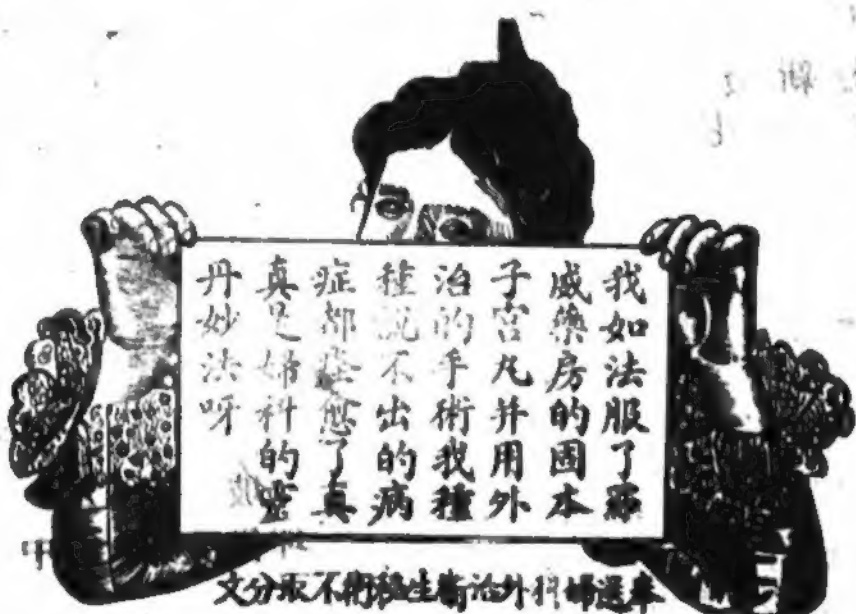 我如法服了羅
威藥房的固本
子宮丸并用外
治的手術我種
種說不出的病
症都痊愈了真
真是婦科的靈
丹妙法呀
奉送婦科外治衛生秘術不取分文